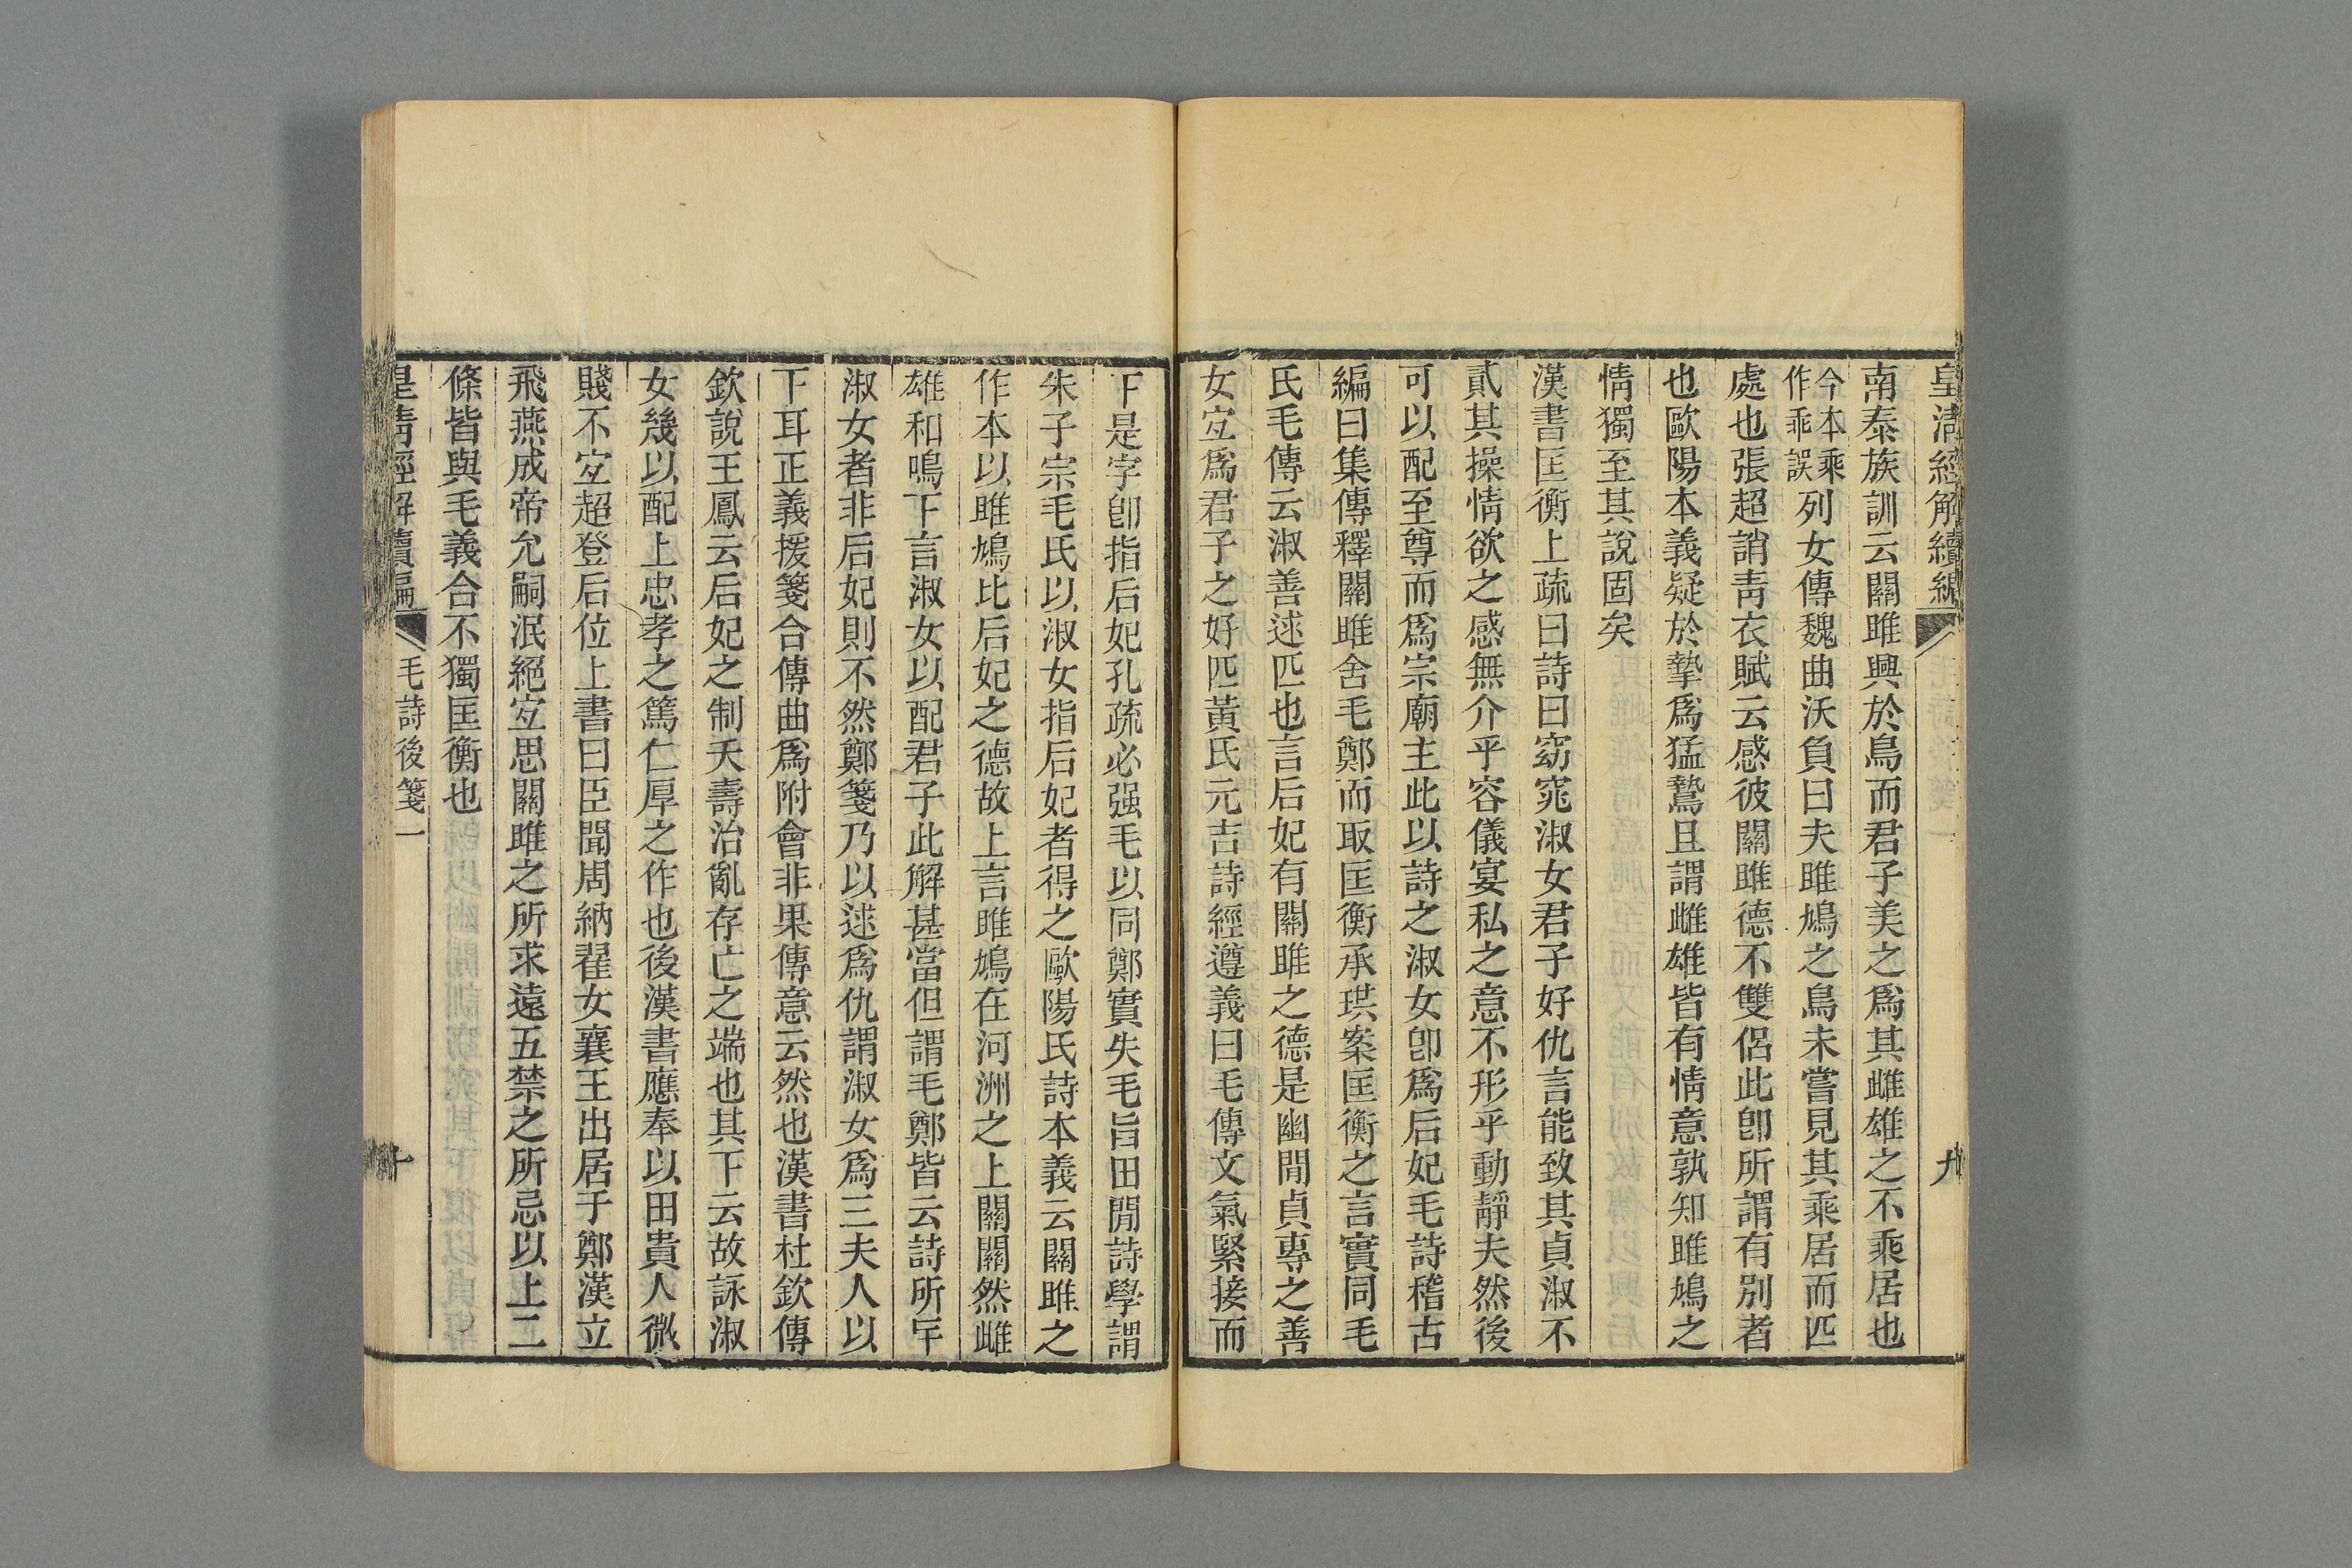 皇清經解續編
九
南泰族訓云關雎興於鳥而君子美之爲其雌雄之不乘居也
今本乘
作乖誤
列女傳魏曲沃負曰夫雎鳩之鳥未嘗見其乘居而匹
處也張超誚靑衣賦云感彼關雎德不雙侶此卽所謂有別者
也歐陽本義疑於摯爲猛鷙且謂雌雄皆有情意孰知雎鳩之
情獨至其說固矣
漢書匡衡上疏曰詩曰窈窕淑女君子好仇言能致其貞淑不
貳其操情欲之感無介乎容儀宴私之意不形乎動靜夫然後
可以配至尊而爲宗廟主此以詩之淑女卽爲后妃毛詩稽古
編曰集傳釋關雎舍毛鄭而取匡衡承珙案匡衡之言實同毛
氏毛傳云淑善逑匹也言后妃有關雎之德是幽閒貞專之善
女宐爲君子之好匹黃氏元吉詩經遵義曰毛傳文氣緊接而
下是字卽指后妃孔疏必强毛以同鄭實失毛旨田閒詩學謂
朱子宗毛氏以淑女指后妃者得之歐陽氏詩本義云關雎之
作本以雎鳩比后妃之德故上言雎鳩在河洲之上關關然雌
雄和鳴下言淑女以配君子此解甚當但謂毛鄭皆云詩所斥
淑女者非后妃則不然鄭箋乃以逑爲仇謂淑女爲三夫人以
下耳正義援箋合傳曲爲附會非果傳意云然也漢書杜欽傳
欽說王鳳云后妃之制夭壽治亂存亡之端也其下云故詠淑
女幾以配上忠孝之篤仁厚之作也後漢書應奉以田貴人微
賤不宐超登后位上書曰臣聞周納翟女襄王出居于鄭漢立
飛燕成帝允嗣泯絕宐思關雎之所求遠五禁之所忌以上二
條皆與毛義合不獨匡衡也
皇淸經解續編
毛詩後箋一
十